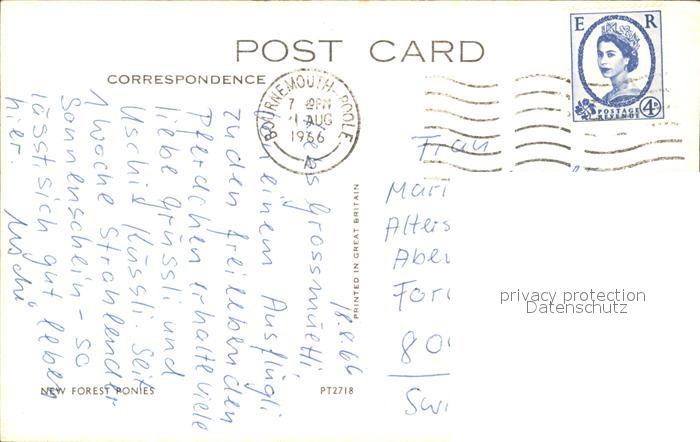 E R
POST CARD
CORRESPONDENCE
BOURNEMOUTH-POOLE
7
PM
AUG
1966
A
POSTAGE
REVENUE
4D
18.8.66
Liebs Grossmüetti
einem Ausflügli
zu den freilebenden
Pferdchen erhalte viele
liebe Grüssli und
Küssli. Seit
1 Woche strahlender
Sonnenschein - so
lässt sich gut leben
hier
Frau
Mari
Alters
Aber
For
80
Swi
PRINTED IN GREAT BRITAIN
NEW FOREST PONIES
PT2718
privacy protection
Datenschutz